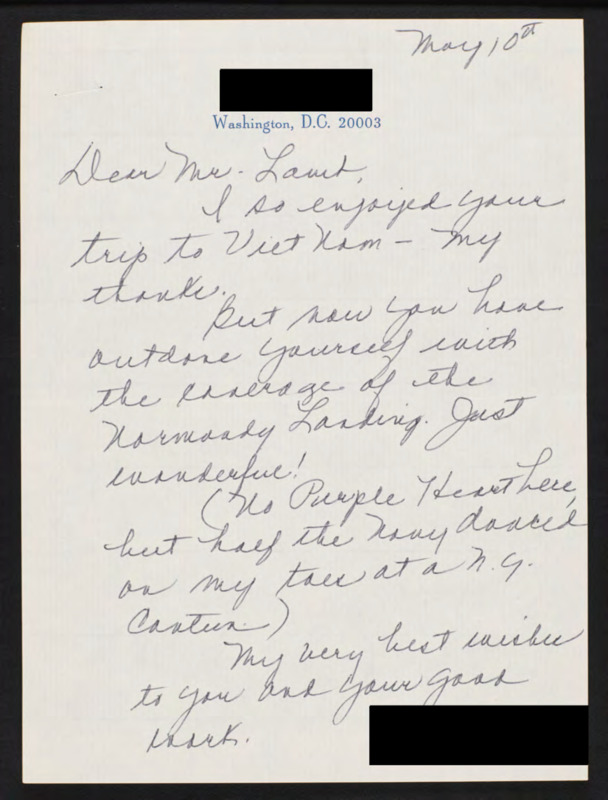 May 10th
Washington, D.C. 20003
Dear Mr. Lamb,
I so enjoyed your
trip to Viet Nam - My
thanks.
But now you have
outdone yourself with
the coverage of the
Normandy Landing. Just
wonderful!
(No Purple Heart here,
but half the Navy danced
on my toes at a N.Y.
Canteen.)
My very best wishes
to you and your good
work.